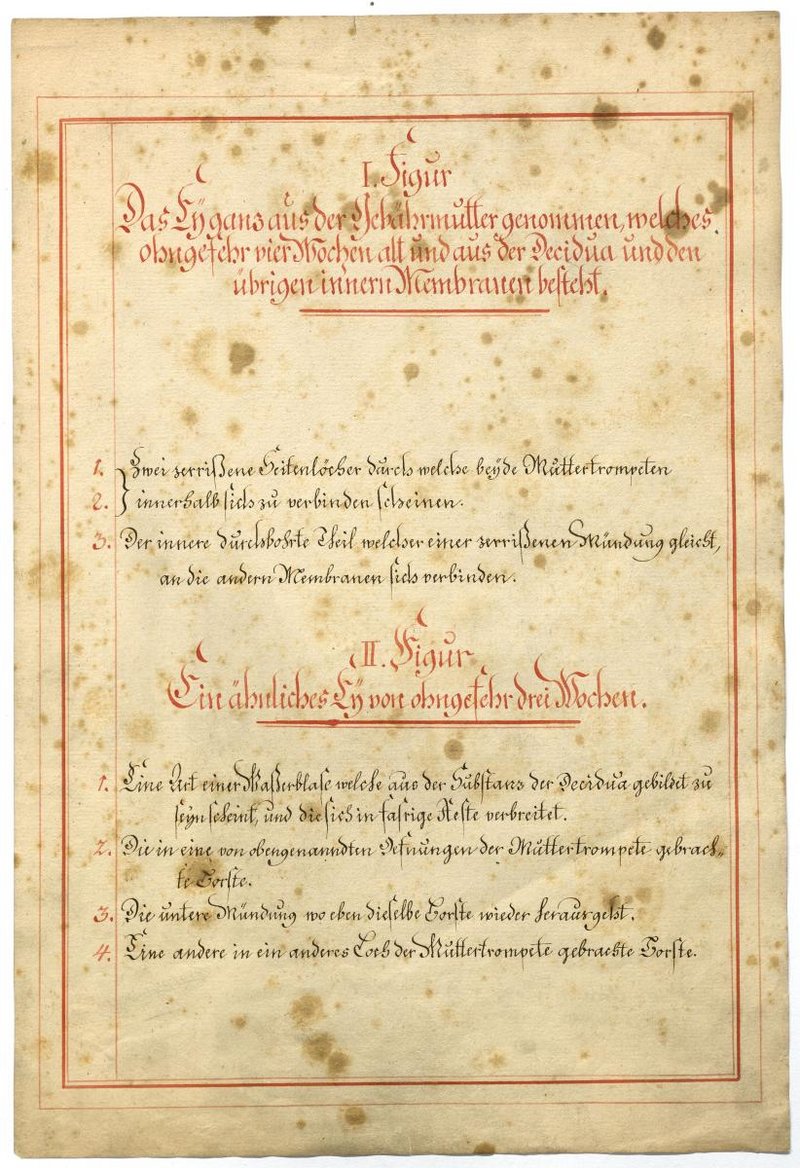 I. Figur
Das Eÿ ganz aus der Gebährmutter genommen, welches
ohngefehr vier Wochen alt und aus der Decidua und den
übrigen innern Membranen besteht.
1. Zwei zerrißene Seitenlöcher durch welche beÿde Muttertrompeten
2. innerhalb sich zu verbinden scheinen.
3. Der innere durchbohrte Theil welcher einer zerrißenen Mündung gleicht,
an die andern Membranen sich verbinden.
II. Figur
Ein ähnliches Eÿ von ohngefehr drei Wochen.
1. Eine Art einer Waßerblase welche aus der Substanz der Decidua gebildet zu
seÿn scheint, und die sich in fasrige Aeste verbreitet.
2. Die in eine von obengenanndten Oefnungen der Muttertrompete gebrach-
te Borste.
3. Die untere Mündung wo eben dieselbe Borste wieder herausgeht.
4. Eine andere in ein anderes Loch der Muttertrompete gebrachte Borste.